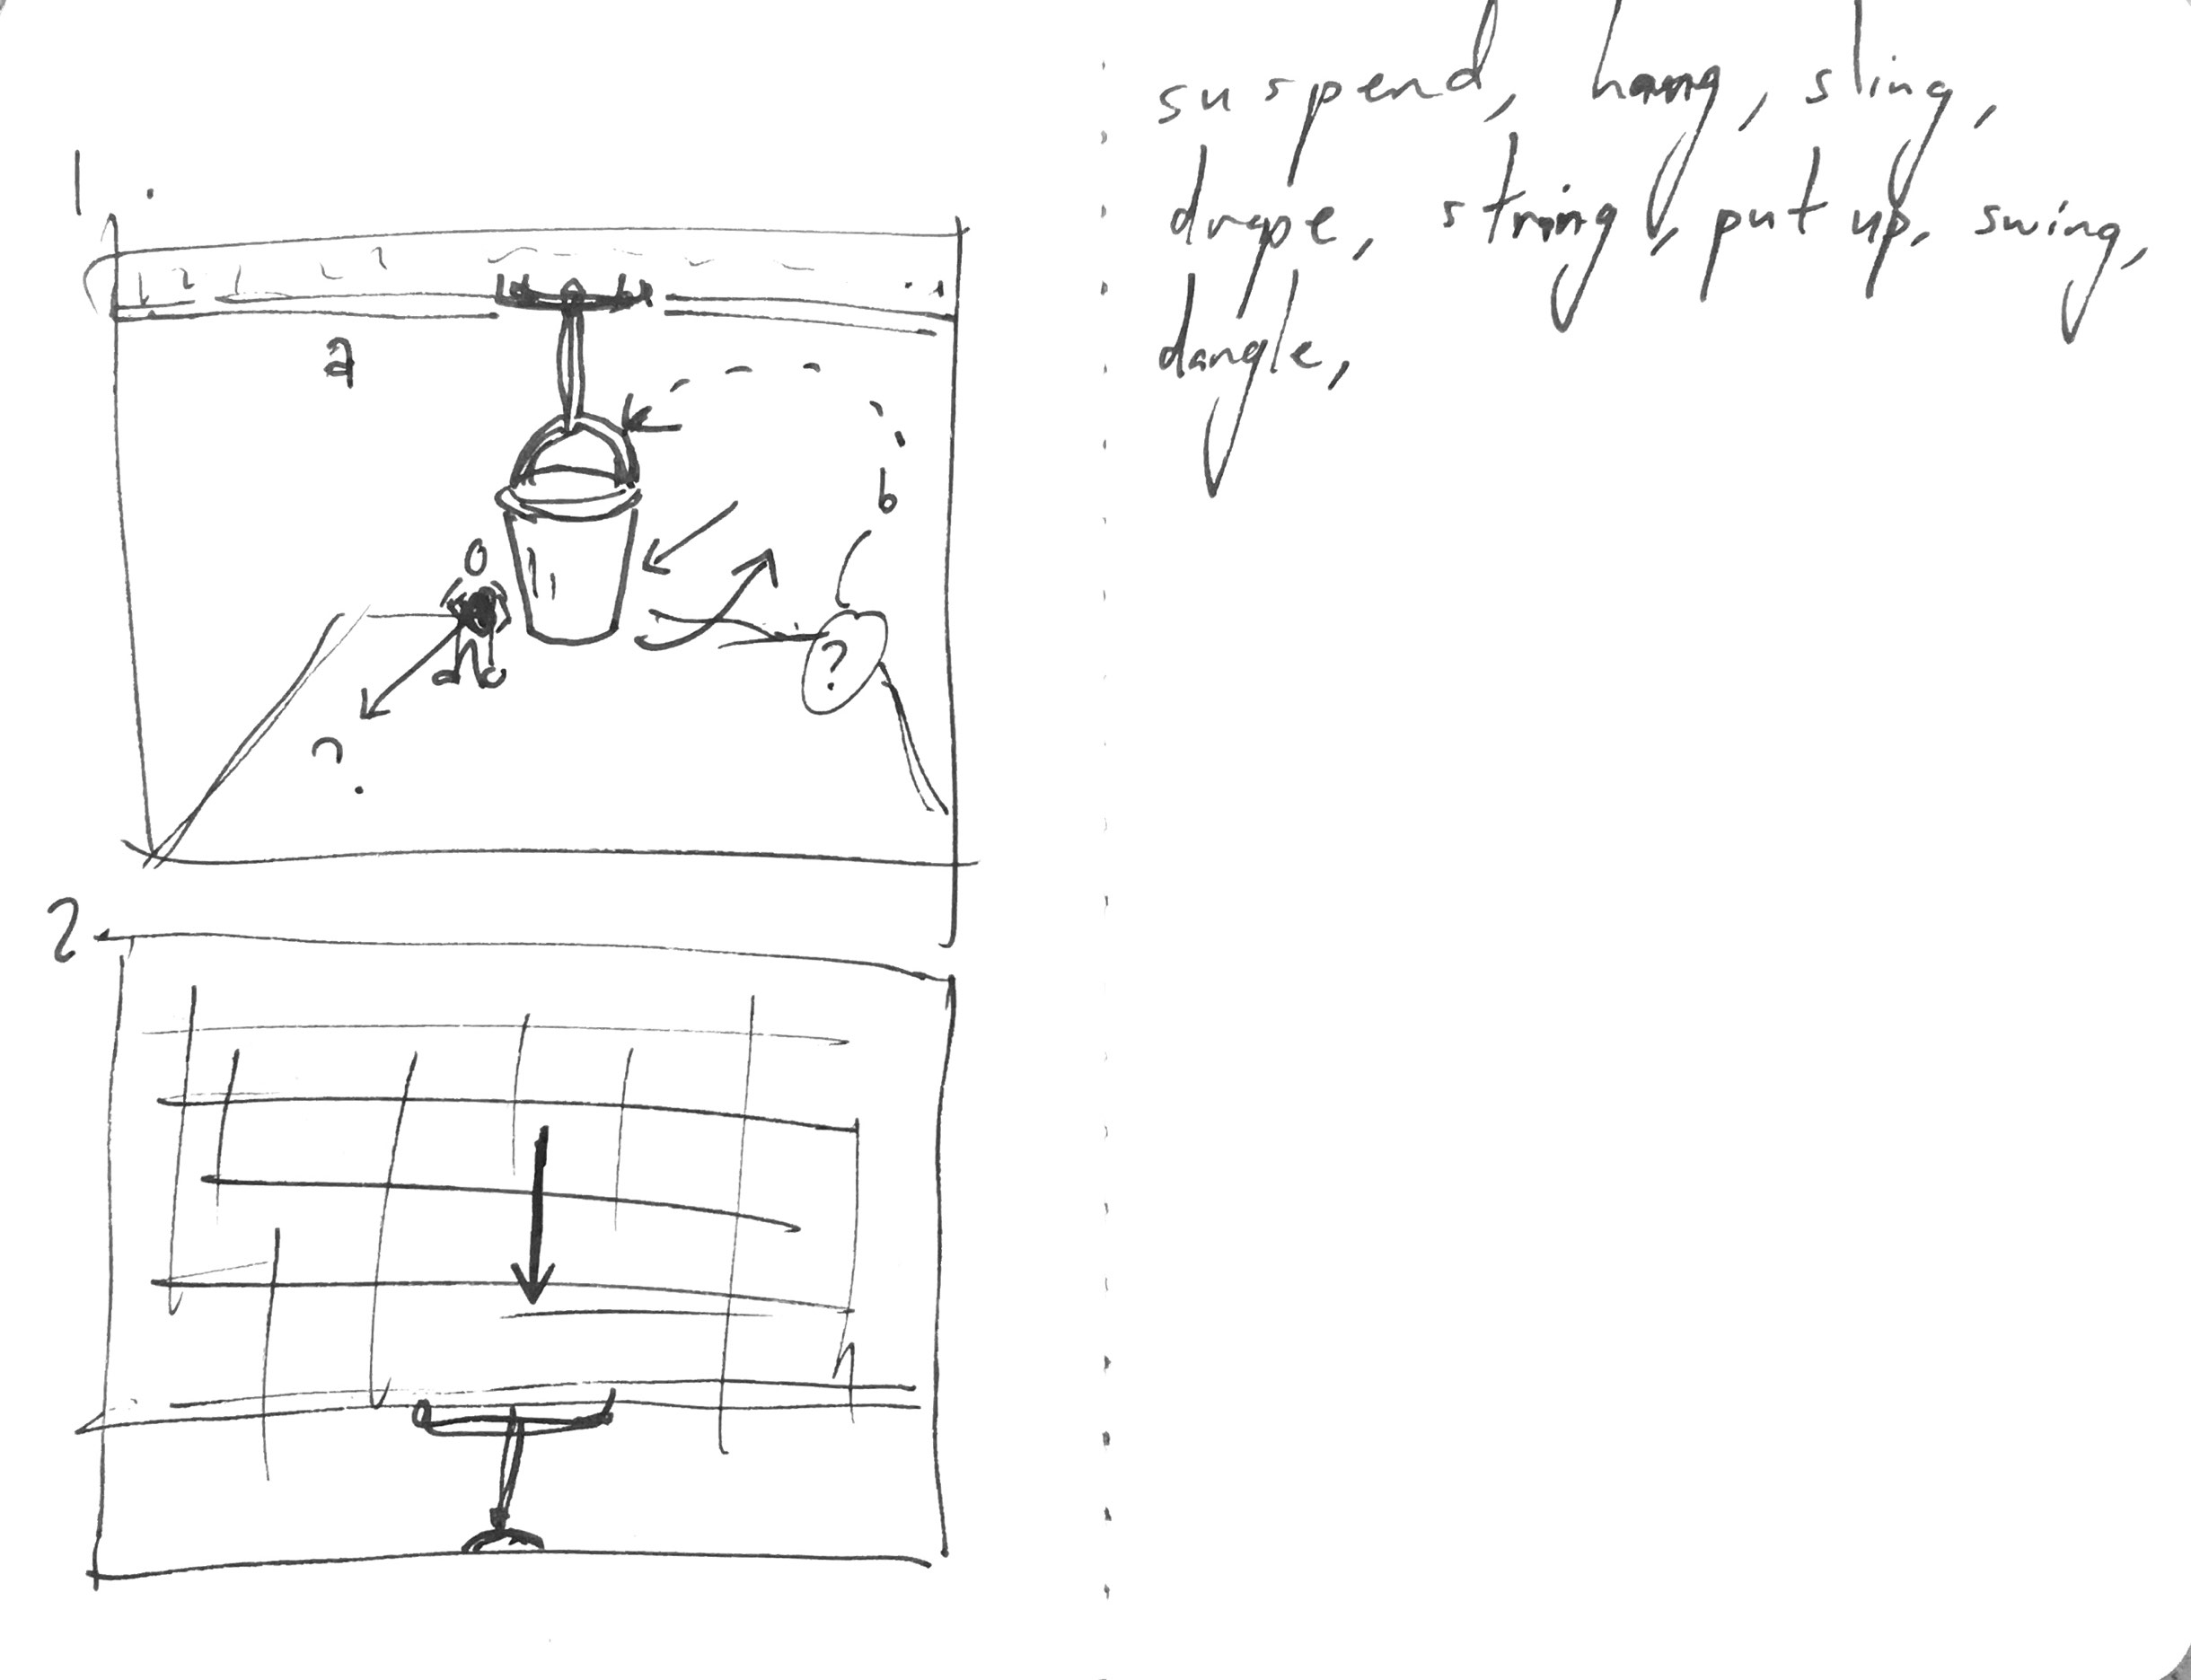 1.
a
b
?
?
2
suspend, hang, sling,
drape, string, put up, swing,
dangle,